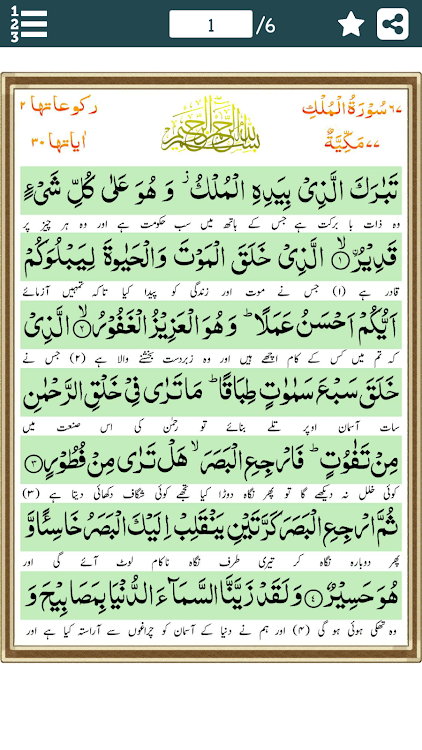 1 /6
سُوْرَةُ الْمُلْكِ ٦٧ رکوعاتها ٢
بِسْمِ اللّٰهِ الرَّحْمٰنِ الرَّحِيْمِ
مَكِّيَّةٌ ٧٧ اٰیاتها ٣٠
تَبٰرَكَ الَّذِىْ بِيَدِهِ الْمُلْكُ ۡ وَ هُوَ عَلٰى كُلِّ شَىْءٍ
وہ ذات با برکت ہے جس کے ہاتھ میں سب حکومت ہے اور وہ ہر چیز پر
قَدِيْرُۨ ۙ﴿۱﴾ الَّذِىْ خَلَقَ الْمَوْتَ وَالْحَيٰوةَ لِيَبْلُوَكُمْ
قادر ہے (۱) جس نے موت اور زندگی کو پیدا کیا تاکہ تمہیں آزمائے
اَيُّكُمْ اَحْسَنُ عَمَلًا ؕ وَ هُوَ الْعَزِيْزُ الْغَفُوْرُ ۙ﴿۲﴾ الَّذِىْ
کہ تم میں کس کے کام اچھے ہیں اور وہ زبردست بخشنے والا ہے (۲) جس نے
خَلَقَ سَبْعَ سَمٰوٰتٍ طِبَاقًا ؕ مَا تَرٰى فِىْ خَلْقِ الرَّحْمٰنِ
سات آسمان اوپر تلے بنائے تو رحمٰن کی اس صنعت میں
مِنْ تَفٰوُتٍ ؕ فَارْجِعِ الْبَصَرَ ۙ هَلْ تَرٰى مِنْ فُطُوْرٍ ﴿۳﴾
کوئی خلل نہ دیکھے گا تو پھر نگاہ دوڑا کیا تجھے کوئی شگاف دکھائی دیتا ہے (۳)
ثُمَّ ارْجِعِ الْبَصَرَ كَرَّتَيْنِ يَنْقَلِبْ اِلَيْكَ الْبَصَرُ خَاسِئًا وَّ
پھر دوبارہ نگاہ کر تیری طرف نگاہ ناکام لوٹ آئے گی اور
هُوَ حَسِيْرٌ ﴿۴﴾ وَ لَقَدْ زَيَّنَّا السَّمَآءَ الدُّنْيَا بِمَصَابِيْحَ وَ
وہ تھکی ہوئی ہو گی (۴) اور ہم نے دنیا کے آسمان کو چراغوں سے آراستہ کیا ہے اور